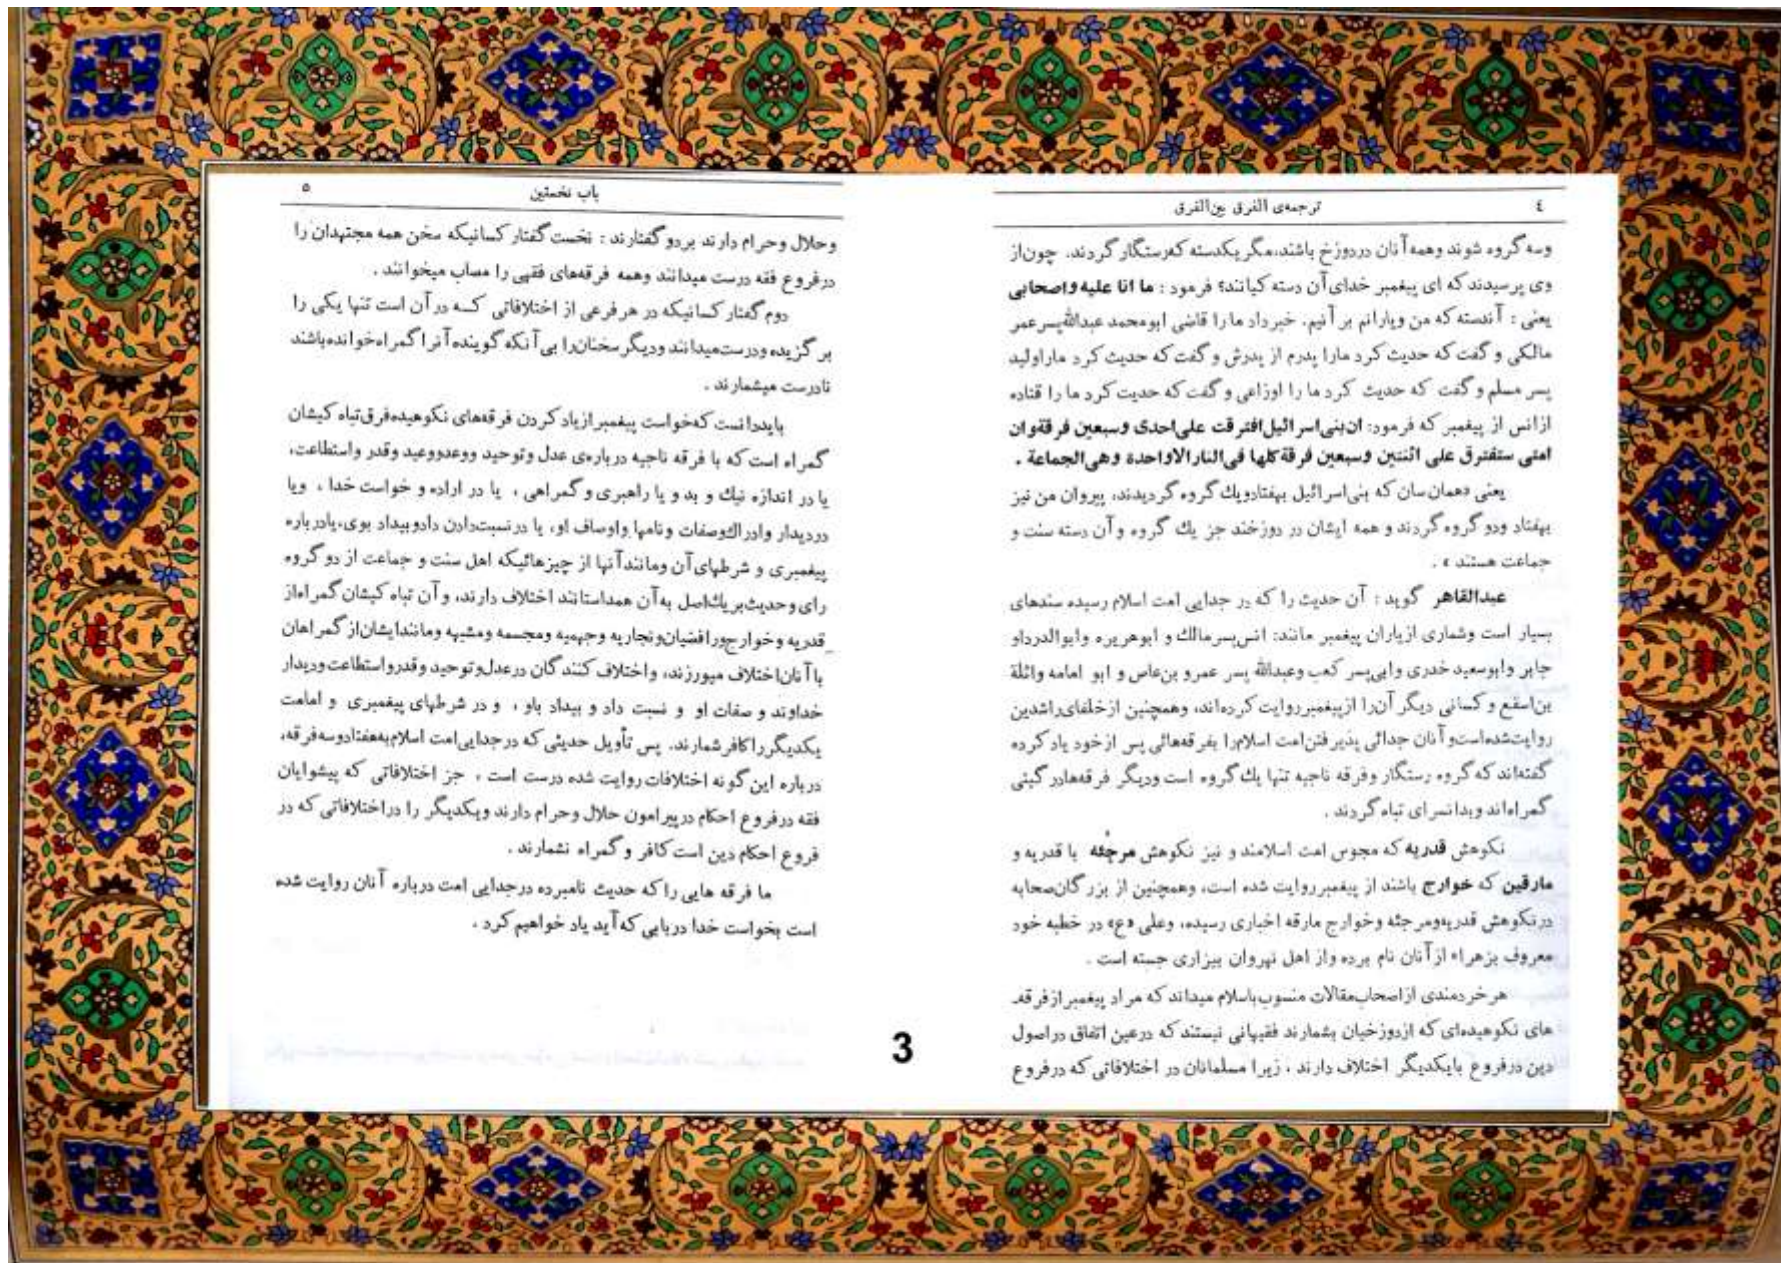 ٤
ترجمه‌ی الفرق بین‌الفرق
وسه گروه شوند وهمه آنان دردوزخ باشند،مگر یکدسته که‌رستگار گردند. چون‌از
وی پرسیدند که ای پیغمبر خدای آن دسته کیانند؟ فرمود : ما انا علیه واصحابی
یعنی : آندسته که من ویارانم بر آنیم. خبرداد ما را قاضی ابومحمد عبدالله‌پسرعمر
مالکی و گفت که حدیث کرد مارا پدرم از پدرش و گفت که حدیث کرد ماراولید
پسر مسلم و گفت که حدیث کرد ما را اوزاعی و گفت که حدیث کرد ما را قتاده
ازانس از پیغمبر که فرمود: ان‌بنی‌اسرائیل‌افترقت علی‌احدی وسبعین فرقةوان
امتی ستفترق علی اثنتین وسبعین فرقة کلها فی‌النارالاواحدة وهی‌الجماعة .
یعنی «همان‌سان که بنی‌اسرائیل بهفتادویك گروه گردیدند، پیروان من نیز
بهفتاد ودو گروه گردند و همه ایشان در دوزخند جز یك گروه و آن دسته سنت و
جماعت هستند » .
عبدالقاهر گوید : آن حدیث را که در جدایی امت اسلام رسیده سندهای
بسیار است وشماری ازیاران پیغمبر مانند: انس‌پسرمالك و ابوهریره وابوالدرداو
جابر وابوسعید خدری وابی‌پسر کعب وعبدالله پسر عمرو بن‌عاص و ابو امامه واثلة
بن‌اسقع و کسانی دیگر آن‌را ازپیغمبرروایت کرده‌اند، وهمچنین ازخلفای‌راشدین
روایت‌شده‌است‌و آنان جدائی پذیرفتن‌امت اسلام‌را بفرقه‌هائی پس ازخود یاد کرده
گفته‌اند که گروه رستگار وفرقه ناجیه تنها یك گروه است ودیگر فرقه‌هادر گیتی
گمراه‌اند وبدانسرای تباه گردند .
نکوهش قدریه که مجوس امت اسلامند و نیز نکوهش مرجئه با قدریه و
مارقین که خوارج باشند از پیغمبرروایت شده است، وهمچنین از بزرگان‌صحابه
درنکوهش قدریه‌ومرجئه وخوارج مارقه اخباری رسیده، وعلی «ع» در خطبه خود
معروف بزهراء ازآنان نام برده واز اهل نهروان بیزاری جسته است .
هرخردمندی ازاصحاب‌مقالات منسوب‌باسلام میداند که مراد پیغمبرازفرقه‌ـ
های نکوهیده‌ای که ازدوزخیان بشمارند فقیهانی نیستند که درعین اتفاق دراصول
دین درفروع بایکدیگر اختلاف دارند ، زیرا مسلمانان در اختلافاتی که درفروع
باب نخستین
٥
وحلال وحرام دارند بردو گفتارند : نخست گفتار کسانیکه سخن همه مجتهدان را
درفروع فقه درست میدانند وهمه فرقه‌های فقهی را مصاب میخوانند .
دوم گفتار کسانیکه در هرفرعی از اختلافاتی کــه درآن است تنها یکی را
بر گزیده ودرست‌میدانند ودیگرسخنان‌را بی‌آنکه گوینده آنرا گمراه‌خوانده‌باشند
نادرست میشمارند .
بایددانست که‌خواست پیغمبرازیاد کردن فرقه‌های نکوهیده‌فرق‌تباه کیشان
گمراه است که با فرقه ناجیه درباره‌ی عدل وتوحید ووعدووعید وقدر واستطاعت،
یا در اندازه نیك و بد و یا راهبری و گمراهی ، یا در اراده و خواست خدا ، ویا
دردیدار وادراك‌وصفات ونامها واوصاف او، یا درنسبت‌دادن دادوبیداد بوی،یادرباره
پیغمبری و شرطهای آن ومانندآنها از چیزهائیکه اهل سنت و جماعت از دو گروه
رای وحدیث‌بریك‌اصل به‌آن همداستانند اختلاف دارند، و آن تباه کیشان گمراه‌از
قدریه وخوارج‌ورافضیان‌ونجاریه وجهمیه ومجسمه ومشبهه وماننداایشان‌از گمراهان
باآنان‌اختلاف میورزند، واختلاف کنندگان درعدل‌وتوحید وقدرواستطاعت‌ودیدار
خداوند و صفات او و نسبت داد و بیداد باو ، و در شرطهای پیغمبری و امامت
یکدیگرراکافرشمارند. پس تأویل حدیثی که درجدایی‌امت اسلام‌بهفتادوسه‌فرقه،
درباره این گونه اختلافات روایت شده درست است ، جز اختلافاتی که پیشوایان
فقه درفروع احکام درپیرامون حلال وحرام دارند ویکدیگر را دراختلافاتی که در
فروع احکام دین است کافر و گمراه نشمارند .
ما فرقه هایی راکه حدیث نامبرده درجدایی امت درباره آنان روایت شده
است بخواست خدا دربابی که آید یاد خواهیم کرد .
3